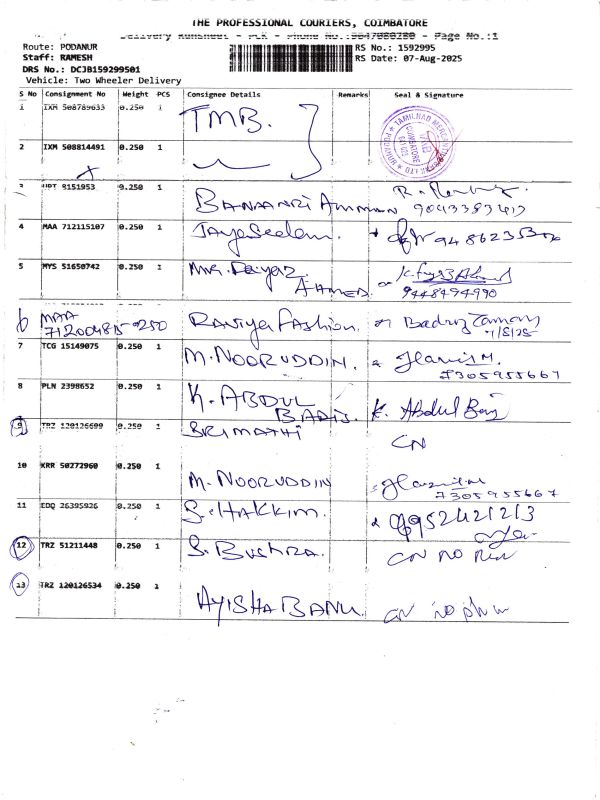 THE PROFESSIONAL COURIERS, COIMBATORE
Delivery Runsheet - PLK - Phone No.: - Page No.:1
Route: PODANUR
RS No.: 1592995
Staff: RAMESH
RS Date: 07-Aug-2025
DRS No.: DCJB159299501
Vehicle: Two Wheeler Delivery
S No Consignment No Weight PCS Consignee Details Remarks Seal & Signature
1 IXM 508789633 0.250 1 TMB.
2 IXM 508814491 0.250 1
3 9151953 0.250 1 BANAARI Amman
4 MAA 712115107 0.250 1 Jayaseelan.
5 MYS 51650742 0.250 1 Mr. Faiyaz AHMED
9448494990
6 MAA 712004815 0.250 Raniya Fashion. Badruz Zaman
7/8/25
7 TCG 15149075 0.250 1 M. NOORUDDIN.
7305955667
8 PLN 2398652 0.250 1 K. ABDUL BARIS. K. Abdul
9 TRZ 120126609 0.250 1 SRIMATHI CN
10 KRR 50272960 0.250 1 M. NOORUDDIN
7305955667
11 EDQ 26395926 0.250 1 S. HAKKIM.
12 TRZ 51211448 0.250 1 S. Bushra. CN NO
13 TRZ 120126534 0.250 1 AYISHA BANU. CN no